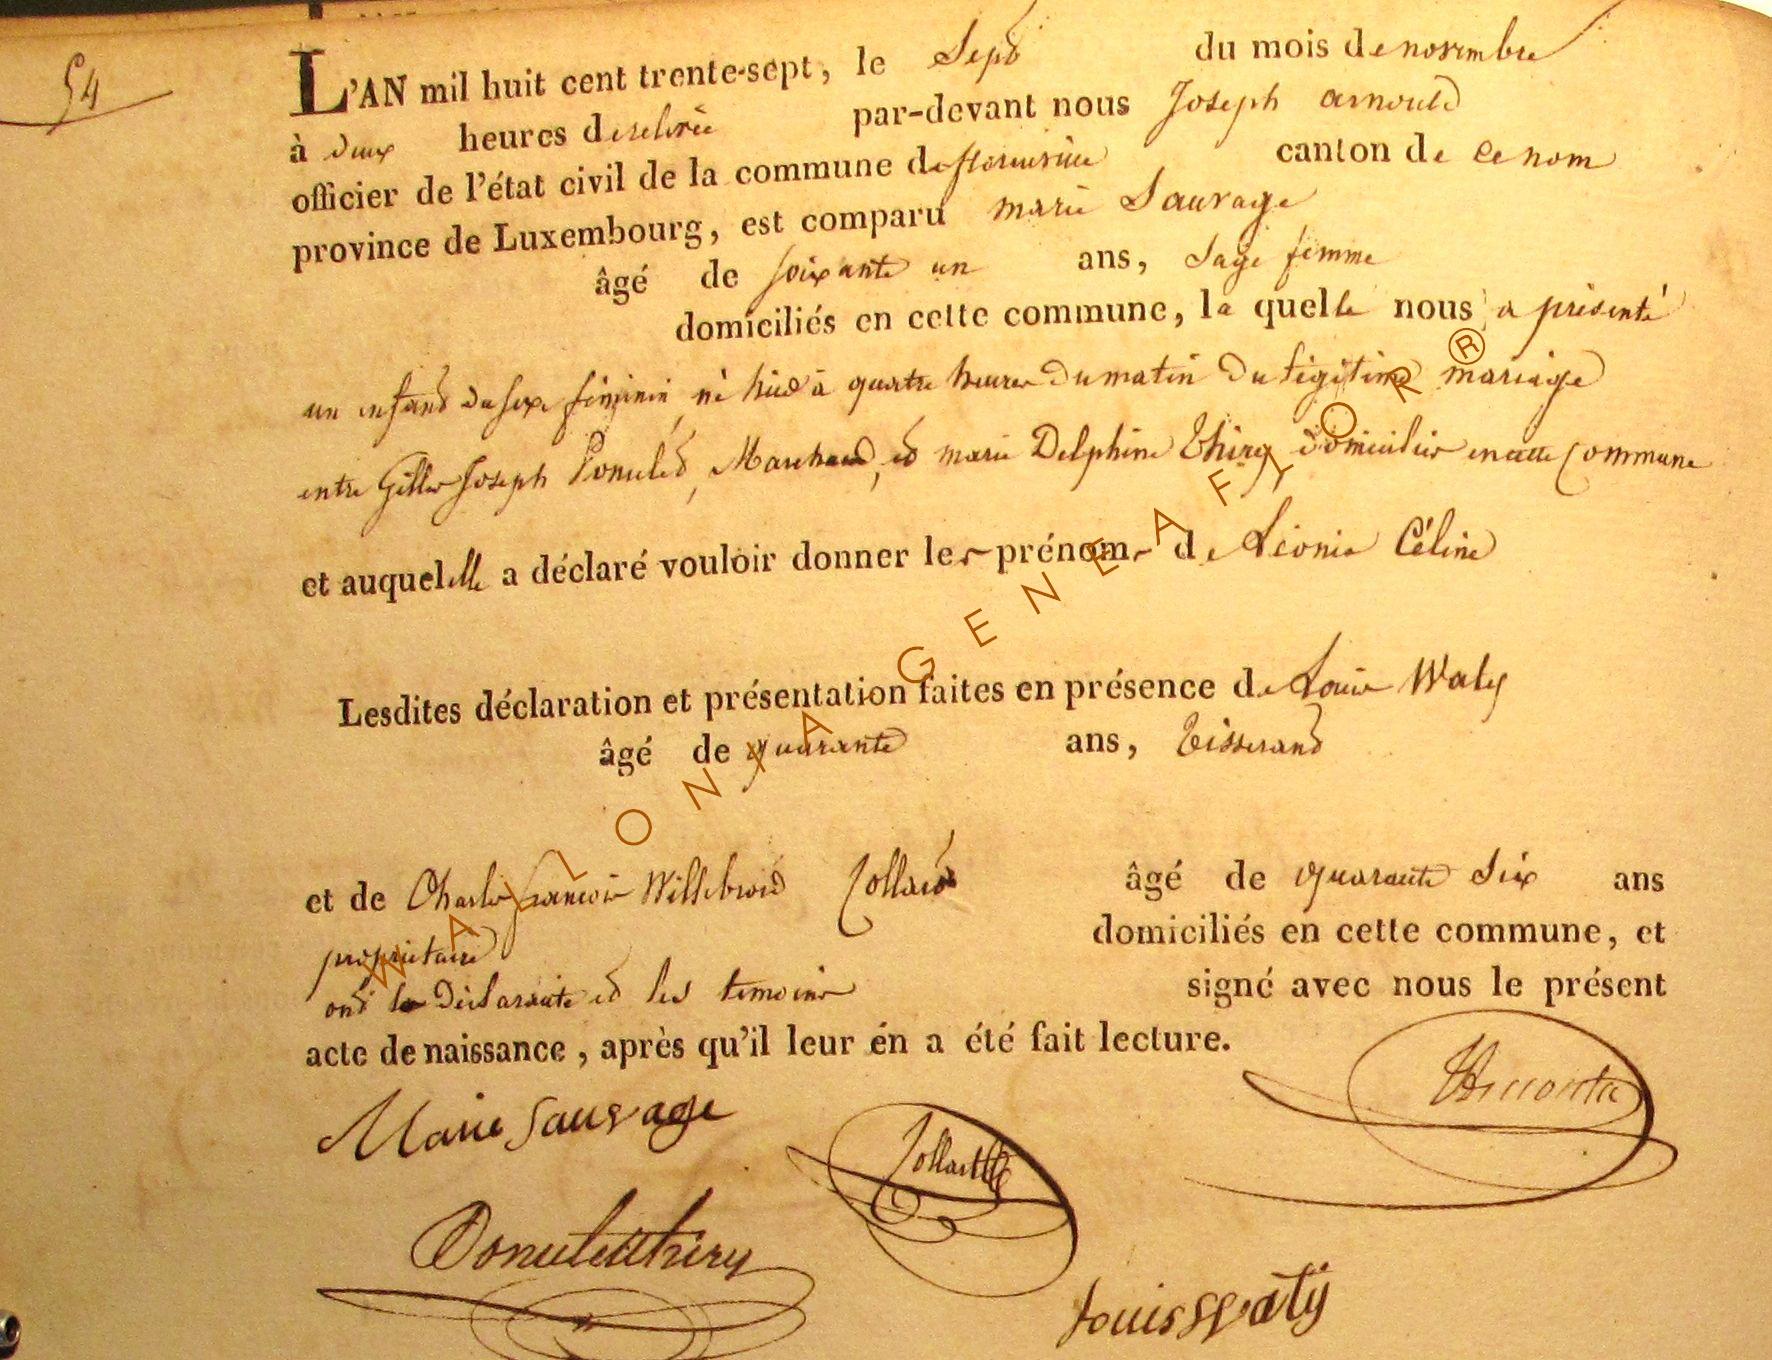 54
L'AN mil huit cent trente-sept, le Sept du mois de novembre
à deux heures de relevée par-devant nous Joseph arnould
officier de l'état civil de la commune de florenville canton de ce nom
province de Luxembourg, est comparu marie Sauvage
âgé de soixante un ans, Sage femme
domiciliés en cette commune, la quelle nous a présenté
un enfant du sexe féminin né hier à quatre heures du matin du légitime mariage
entre Gilles Joseph Ponulet, Marchand, et marie Delphine Thiry domiciliés en cette commune
et auquel elle a déclaré vouloir donner les prénoms de Léonie Céline
Lesdites déclaration et présentation faites en présence de Louis Waty
âgé de quarante ans, Tisserand
et de Charles françois Willebrord Collard âgé de quarante Six ans
propriétaire domiciliés en cette commune, et
ont la Déclarante et les témoins signé avec nous le présent
acte de naissance, après qu'il leur én a été fait lecture.
Marie Sauvage
Louis Waty
WALLONIA GENEAFLOR®